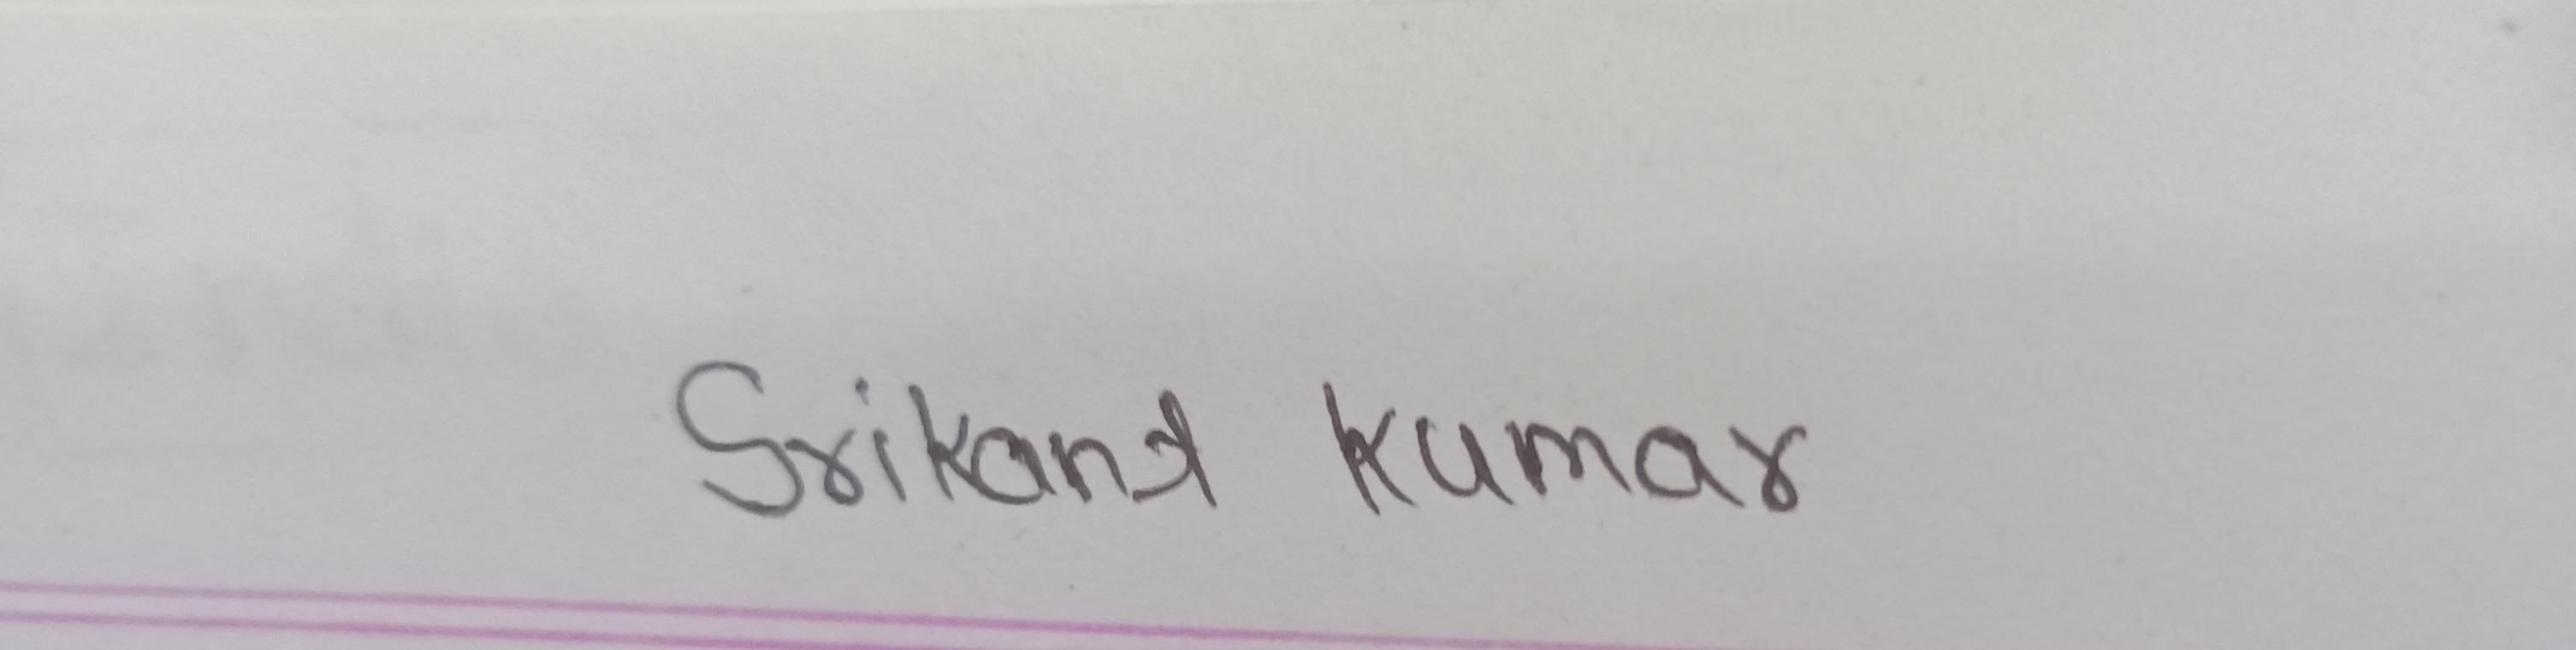 Srikant Kumar